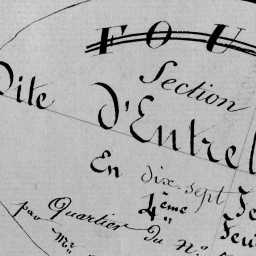 FOU
Section
Dite d'Entre
En dix-sept Fe
4ème Feui
Quartier Du No
par Mr